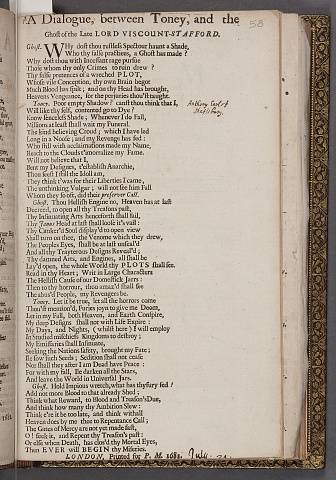 A Dialogue, between Toney, and the
58
Ghost of the Late LORD VISCOUNT-STAFFORD.
Ghost. WHy dost thou restless Spectour haunt a Shade,
Who thy false practices, a Ghost has made?
Why dost thou with Incessant rage pursue
Those whom thy only Crimes to ruin drew?
Thy false pretences of a wreched PLOT,
Whose vile Conception, thy own Brain begot
Much Blood has spilt; and on thy Head has brought,
Heavens Vengeance, for the perjuries thou'st taught.
Toney. Poor empty Shadow! canst thou think that I,
Anthony Earl of
Shaftsbury.
Will like thy self, contented go to Dye?
Know senceless Shade, Whenever I do Fall,
Millions at least shall wait my Funeral.
The kind believing Croud; which I have led
Long in a Noose; and my Revenge has fed:
Who still with acclamations made my Name,
Reach to the Clouds t'imortalize my Fame.
Will not believe that I,
Bent my Dessignes, t'establish Anarchie,
Then seest I still the Idoll am,
They think t'was for their Liberties I came,
The unthinking Vulgar; will not see him Fall
Whom they so oft, did their preserver Call.
Ghost. Thou Hellish Engine no, Heaven has at last
Decreed, to open all thy Treasons past,
Thy Infatuating Arts henceforth shall fail,
Thy Janus Head at last shall look it's vast:
Thy Canker'd Soul display'd to open view
Shall turn on thee, the Venome which they drew,
The Peoples Eyes, shall be at last unseal'd
And all thy Traiterous Designs Reveal'd;
Thy damned Arts, and Engines, all shall be
Lay'd open, the whole World thy PLOTS shall see.
Read in thy Heart; Writ in Large Characters
The Hellish Cause of our Domestick Jarrs:
Then to thy horrour, thou amaz'd shall see
The abus'd People, my Revengers be.
Toney. Let it be true, let all the horrors come
Thou'st mention'd, Furies joyn to give me Doom,
Let in my Fall, both Heaven, and Earth Conspire,
My deep Designs shall not with Life Expire:
My Days, and Nights, (whilst here) I will employ
In Studied mischiefs Kingdoms to destroy;
My Emissaries shall Insinuate,
Seeking the Nations safety, brought my Fate;
I'le sow such Seeds; Sedition shall not cease
Nor shall they after I am Dead have Peace:
For with my fall, Ile darken all the Stars,
And leave the World in Universal Jars.
Ghost. Hold Impious wretch, what has thy fury fed?
Add not more Blood to that already Shed;
Think what Reward, to Blood and Treason's Due,
And think how many thy Ambition Slew:
Think e're it be too late, and think withall
Heaven does by me thee to Repentance Call;
The Gates of Mercy are not yet made fast,
O! seek it, and Repent thy Treason's past;
Or else when Death, has clos'd thy Mortal Eyes,
Then EVER will BEGIN thy Miseries.
LONDON, Printed for P. M. 1681.
July.